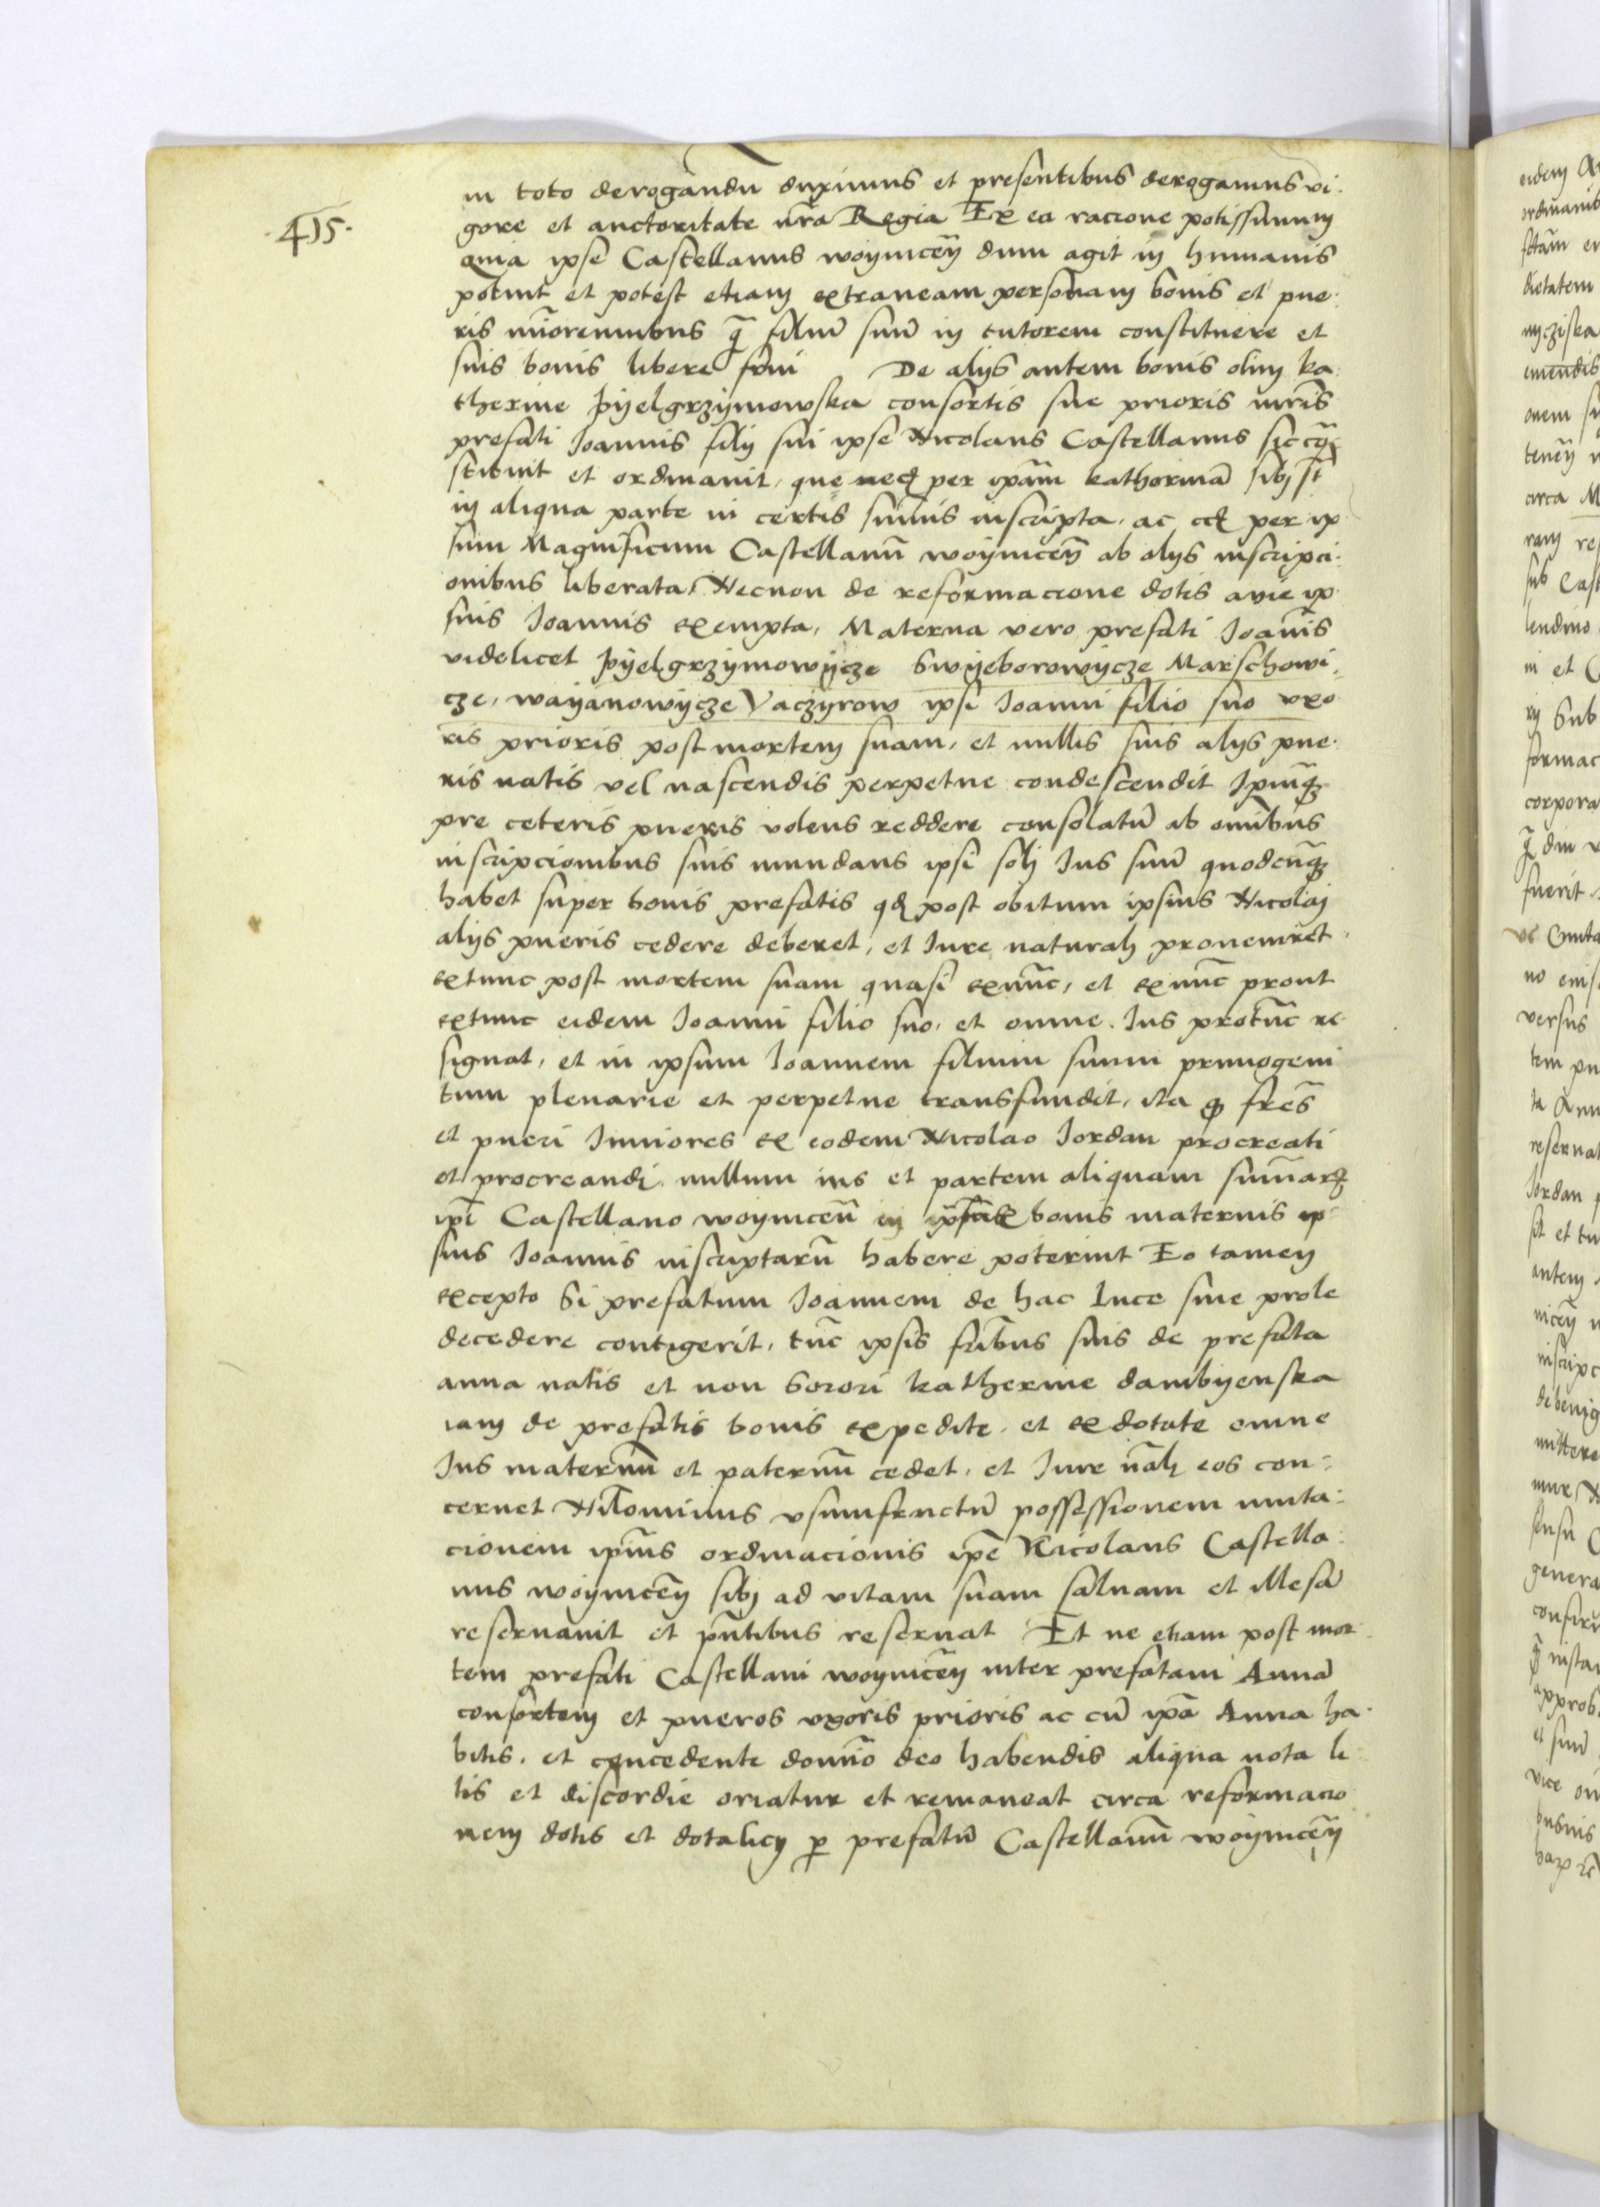 in toto derogandũ duximus et presentibus derogamus vi:
·415·
gore et auctoritate nr̃a Regia Ex ea racione potissimum
Quia ipse Castellanus woynicen̄ dum agit in humanis
potuit et potest etiam extraneam personam bonis et pue:
ris mĩorennibus q̃ filiũ suũ in tutorem constituere et
suis bonis libere frui De alijs autem bonis olim ka:
therine pyelgrzymowska consortis sue prioris mr̃is
prefati Joannis filij sui ipse Nicolaus Castellanus sic cõ
stituit et ordinavit, que neq per ipam̃ katherinã sibj st̃
in aliqua parte in certis sum̃is inscripta, ac per ip
sum Magnificum Castellanũ woynicen̄ ab alijs inscripci:
onibus liberata, Necnon de reformacione dotis avie ip
sius Joannis exempta, Materna vero prefati Joañis
videlicet pyelgrzymowycze Swyeborowycze Marschowi:
cze, wayanowycze Vaczyrow ipsi Joanni filio suo vxo
ris prioris post mortem suam, et nullis suis alijs pue:
ris natis vel nascendis perpetue condescendit Ipm̃q
pre ceteris pueris volens reddere consolatũ ab om̃ibus
inscripcionibus suis mundans ipsi solj Jus suũ quodcũq
habet super bonis prefatis qd post obitum ipsius Nicolaj
alijs pueris cedere deberet, et Jure naturalj proveniret
extunc post mortem suam quasi exnũc, et exnũc prout
extunc eidem Joanni filio suo, et omne Jus protũc re
signat, et in ipsum Joannem filium suum primogeni
tum plenarie et perpetue transfundit, ita q fr̃es
et pueri Iuniores ex eodem Nicolao Jordan procreati
et procreandi nullum ius et partem aliquam sum̃arz
ipĩ Castellano woynicen̄ in bonis maternis ip
sius Joannis inscriptarũ habere poterint Eo tamen
excepto Si prefatum Joannem de hac luce sine prole
decedere contigerit, tũc ipsis fr̃ibus suis de prefata
anna natis et non Sorori katherine dambyenska
iam de prefatis bonis expedite, et exdotate omne
Jus maternũ et paternũ cedet, et Jure nãlj eos con:
cernet Nilominus vsumfructũ possessionem muta:
cionem ipiũs ordinacionis ipẽ Nicolaus Castella:
nus woynicen̄ sibj ad vitam suam salvam et illesã
reservavit et pñtibus reservat Et ne etiam post mor
tem prefati Castellani woynicen̄ inter prefatam Annã
consortem et pueros vxoris prioris ac cũ ipã Anna ha:
bitis, et concedente domĩo deo habendis aliqua nota li
tis et discordie oriatur et remaneat circa reformacio
nem dotis et dotalicij p prefatũ Castellanũ woynicen̄